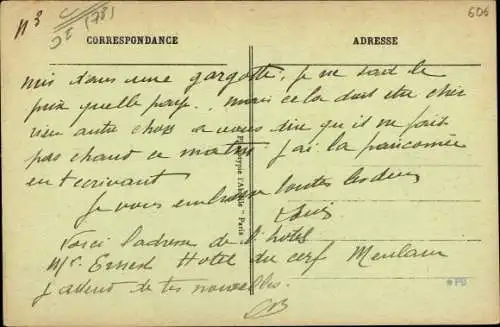 N 3
(78)
606
CORRESPONDANCE
ADRESSE
mis dans une gargotte, je ne sait le
prix quelle paye.. mais cela doit etre cher
rien autre chose a vous dire qu'il ne fait
pas chaud ce matin. j'ai la
en t'ecrivant
Je vous embrasse toutes les deux
Voici l'adresse de l'hotel
Mr. Ernest Hotel du cerf Meulan
J'attend de tes nouvelles.
Phototypie l'Abeille - Paris